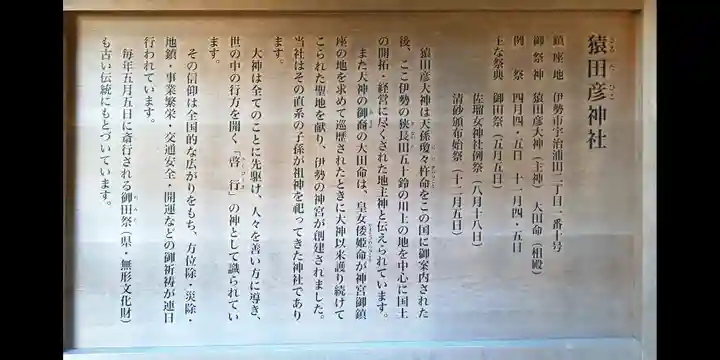 猿田彦神社
鎮座地 伊勢市宇治浦田二丁目一番十号
御祭神 猿田彦大神(主神) 大田命(相殿)
例祭 四月四・五日 十一月四・五日
主な祭典 御田祭(五月五日)
佐瑠女神社例祭(八月十八日)
清砂頒布始祭(十二月五日)
猿田彦大神は天孫瓊々杵命をこの国に御案内された
後、ここ伊勢の狭長田五十鈴の川上の地を中心に国土
の開拓・経営に尽くされた地主神と伝えられています。
また大神の御裔の大田命は、皇女倭姫命が神宮御鎮
座の地を求めて巡歴されたときに大神以来護り続けて
こられた聖地を献り、伊勢の神宮が創建されました。
当社はその直系の子孫が祖神を祀ってきた神社であり
ます。
大神は全てのことに先駆け、人々を善い方に導き、
世の中の行方を開く「啓行」の神として識られてい
ます。
その信仰は全国的な広がりをもち、方位除・災除・
地鎮・事業繁栄・交通安全・開運などの御祈祷が連日
行われています。
毎年五月五日に斎行される御田祭(県・無形文化財)
も古い伝統にもとづいています。